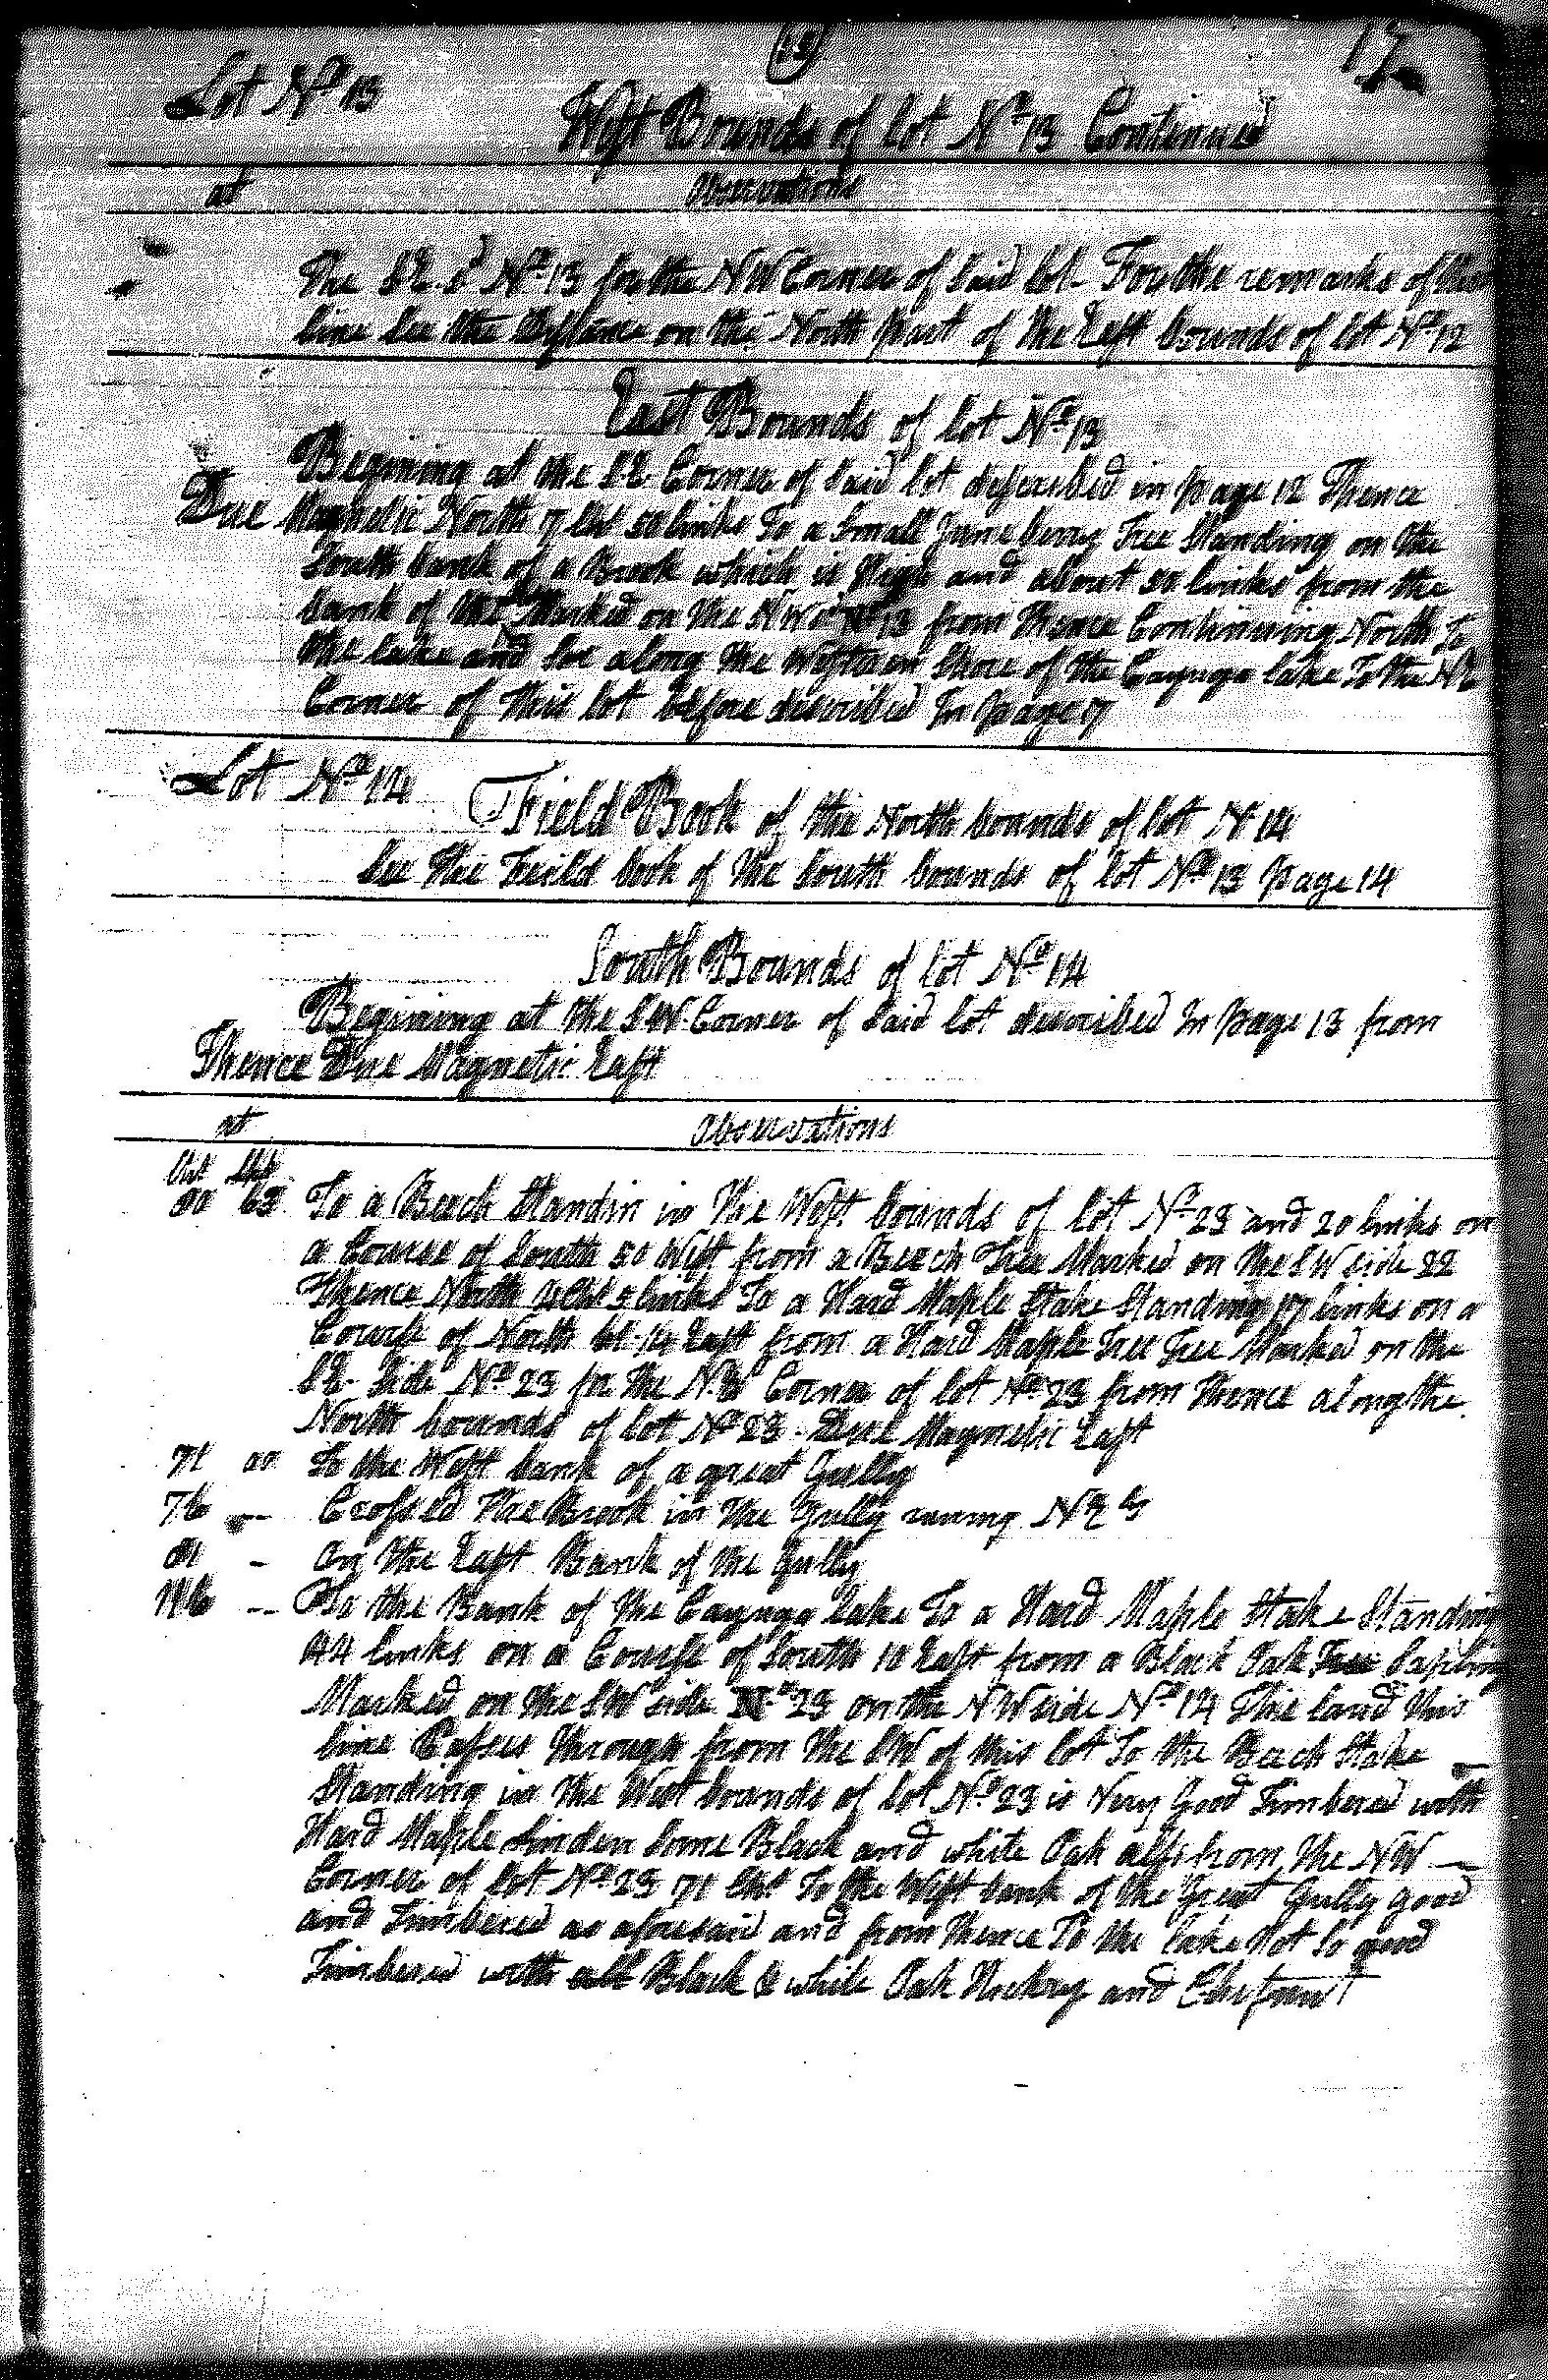 17
Lot No 13
West Bounds of lot No 13 Continued
at Observations
The SE d No 13 for the NW Corner of said lot - For the remarks of this
line see the distance on the North part of the East bounds of lot No 12
East Bounds of lot No 13
Begining at the SE Corner of said lot described in page 12 Thence
Due Magnetic North 7 Chs 50 links To a Small June berry Tree Standing on the
South bank of a Brook which is High and about 50 links from the
bank of the Marked on the NW No 13 from thence Continuing North To
the lake and soe along the Western Shore of the Cayuga lake To the NE
Corner of this lot before described In page 7
Lot No 14 Field Book of the North bounds of lot N 14
See the Feild book of the South bounds of lot No 13 page 14
South Bounds of lot No 14
Begining at the SW Corner of said lot described In page 13 from
Thence Due Magnetic East
at Observations
63 To a Beech Standin in the West bounds of lot No 23 and 20 links on
a Course of South 50 West from a Beech Tree Marked on the SW side 22
Thence North links To a Hard Maple Stake Standing 17 links on a
Course of North East from a Hard Maple Tree Tree Marked on the
SE Side No 23 for the N.W Corner of lot No 23 from thence along the
North bounds of lot No 23 Due Magnetic East
71 00 To the West bank of a great Gully
76 -- Crossed the Brook in the Gully runing NE ly
81 - On the East Bank of the Gully
116 -- To the Bank of the Cayuga lake To a Hard Maple Stake Standing
44 links on a Course of South 10 East from a Black Oak Tree Sapling
Marked on the SW side No 23 on the NW side No 14 The land this
line Passes through from the SW of this lot To the Beech Stake
Standing in the West bounds of lot No 23 is Very Good Timbered with
Hard Maple Linden Some Black and white Oak also from the NW
Corner of lot No 23 71 Chs To the West bank of the Great Gully good
and Timbered as aforesaid and from thence To the lake Not So good
Timbered with all Black & white Oak Hickory and Chesnut